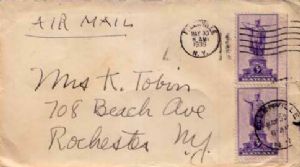 AIR MAIL
MAY 30
AM
1938
N. Y.
Mrs K. Tobin
708 Beach Ave
Rochester NY
HAWAII
HAWAII